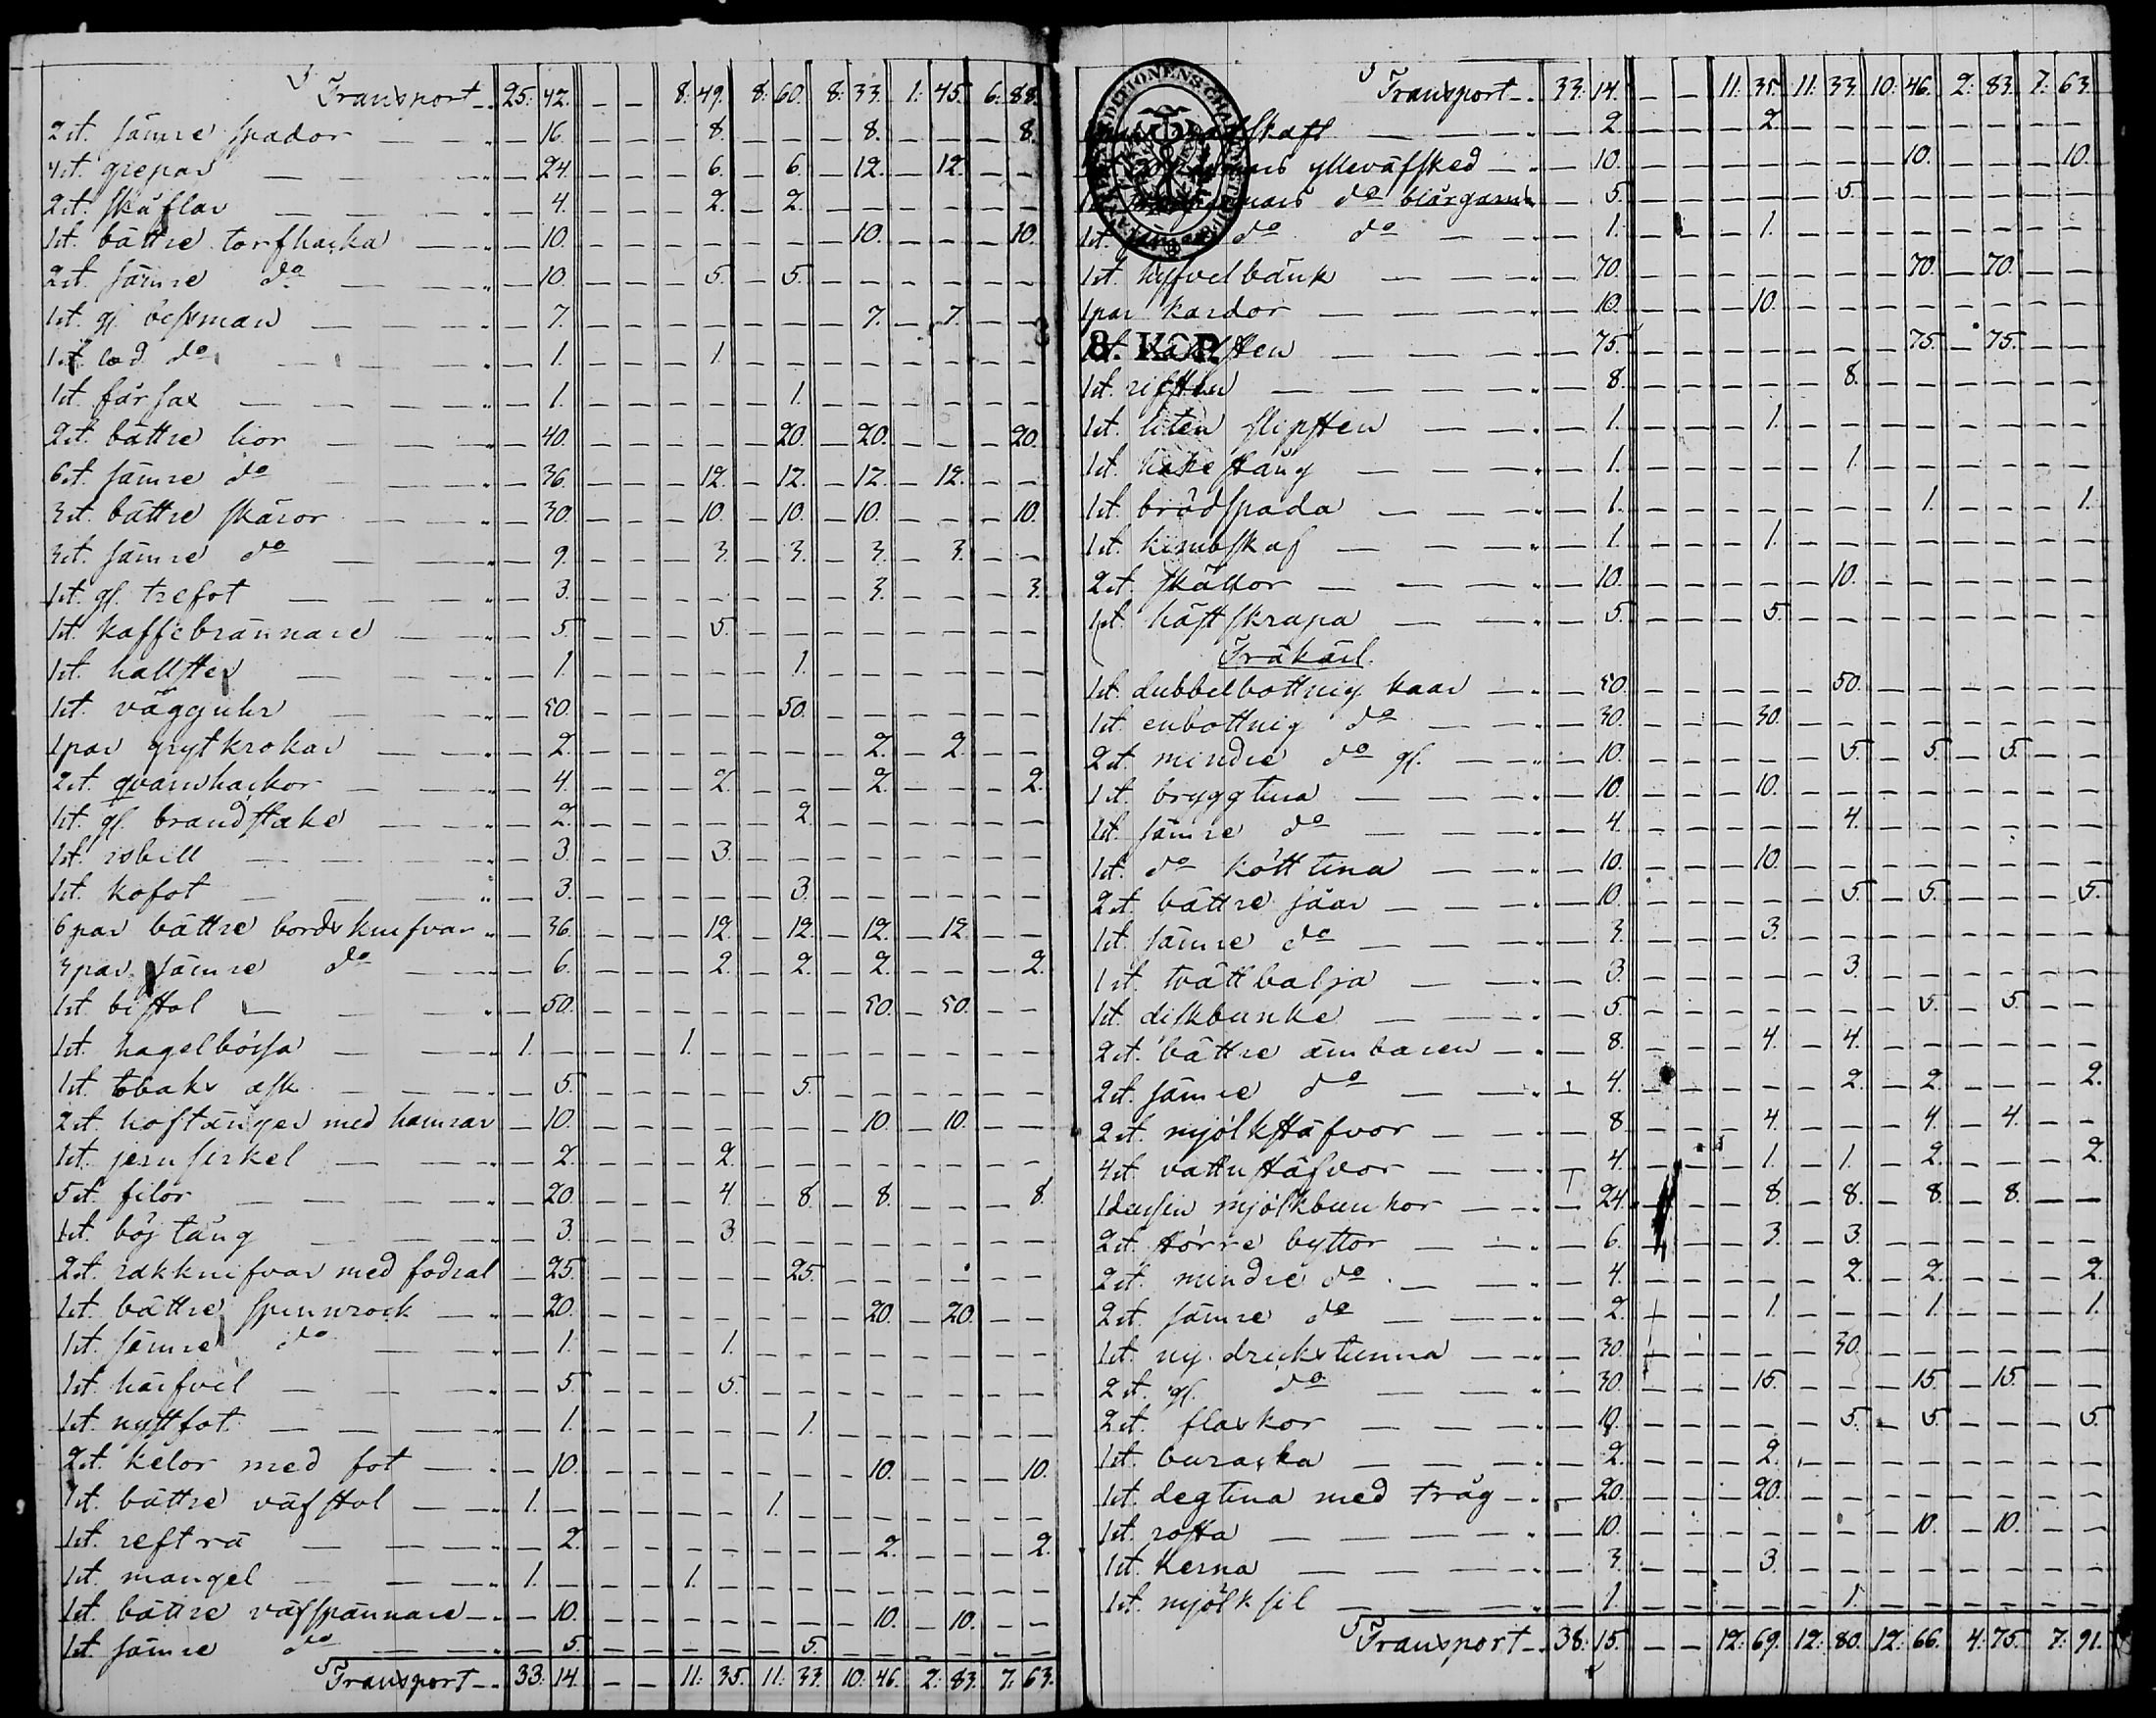 Transport 25: 42. — — 8: 49. 8: 60. 8: 33. 1: 45. 6: 88.
2 st. sämre spador — 16. — — — 8. — — — 8. — — — 8.
4 st. grepar — 24. — — — 6. — 6. — 12. — 12. — —
2 st. skäflar — 4. — — — 2. — 2. — — — — — —
1 st. bättre torfhacka — 10. — — — — — — — 10. — — — 10.
2 st. sämre do — 10. — — — 5. — 5. — — — — — —
1 st. gl. bessman — 7. — — — — — — — 7. — 7. — —
1 st. do — 1. — — — 1. — — — — — — — —
1 st. fårsax — 1. — — — — — 1. — — — — — —
2 st. bättre lior — 40. — — — — — 20. — 20. — — — 20.
6 st. sämre do — 36. — — — 12. — 12. — 12. — 12. — —
3 st. bättre skäror — 30. — — — 10. — 10. — 10. — — — 10.
3 st. sämre do — 9. — — — 3. — 3. — 3. — 3. — —
1 st. gl. trefot — 3. — — — — — — — 3. — — — 3.
1 st. kaffebrännare — 5. — — — 5. — — — — — — — —
1 st. hallster — 1. — — — — — 1. — — — — — —
1 st. vägguhr — 50. — — — — — 50. — — — — — —
1 par grytkrokar — 2. — — — — — — — 2. — 2. — —
2 st. qvarnhackor — 4. — — — 2. — — — 2. — — — 2.
1 st. gl. brandstake — 2. — — — — — 2. — — — — — —
1 st. isbill — 3. — — — 3. — — — — — — — —
1 st. kofot — 3. — — — — — 3. — — — — — —
6 par bättre bordsknifvar — 36. — — — 12. — 12. — 12. — 12. — —
3 par sämre do — 6. — — — 2. — 2. — 2. — — — 2.
1 st. bistol — 50. — — — — — — — 50. — 50. — —
1 st. hagelbössa 1. — — — 1. — — — — — — — — —
1 st. tobaks ask — 5. — — — — — 5. — — — — — —
2 st. hoftänger med hamrar — 10. — — — — — — — 10. — 10. — —
1 st. jernsirkel — 2. — — — 2. — — — — — — — —
5 st. filor — 20. — — — 4. — 8. — 8. — — — 8.
1 st. böj tång — 3. — — — 3. — — — — — — — —
2 st. rakknifvar med fodral — 25. — — — — — 25. — — — — — —
1 st. bättre spinnrock — 20. — — — — — — — 20. — 20. — —
1 st. sämre do — 1. — — — 1. — — — — — — — —
1 st. härfvel — 5. — — — 5. — — — — — — — —
1 st. nystfot — 1. — — — — — 1. — — — — — —
2 st. kelor med fot — 10. — — — — — — — 10. — — — 10.
1 st. bättre väfstol 1. — — — — — 1. — — — — — — —
1 st. refträ — 2. — — — — — — — 2. — — — 2.
1 st. mangel 1. — — — 1. — — — — — — — — —
1 st. bättre väfspännare — 10. — — — — — — — 10. — 10. — —
1 st. sämre do — 5. — — — — — 5. — — — — — —
Transport 33: 14. — — 11: 35. 11: 33. 10: 46. 2: 83. 7: 63.
Transport 33: 14. — — 11: 35. 11: 33. 10: 46. 2: 83. 7: 63.
skaft — 2. — — — 2. — — — — — — — —
ylleväfsked — 10. — — — — — — — 10. — — — 10.
do blårgarns — 5. — — — — — 5. — — — — — —
1 st. do do — 1. — — — 1. — — — — — — — —
1 st. hyfvelbänk — 70. — — — — — — — 70. — 70. — —
1 par kardor — 10. — — — 10. — — — — — — — —
8. KOP. — 75. — — — — — — — 75. — 75. — —
1 st. rifsten — 8. — — — — — 8. — — — — — —
1 st. liten slipsten — 1. — — — 1. — — — — — — — —
1 st. hakestång — 1. — — — — — 1. — — — — — —
1 st. brödspada — 1. — — — — — — — 1. — — — 1.
1 st. kimbskaf — 1. — — — 1. — — — — — — — —
2 st. skäkor — 10. — — — — — 10. — — — — — —
1 st. hästskrapa — 5. — — — 5. — — — — — — — —
Träkärl.
1 st. dubbelbottnig kaar — 50. — — — — — 50. — — — — — —
1 st. enbottnig do — 30. — — — 30. — — — — — — — —
2 st. mindre do gl. — 10. — — — — — 5. — 5. — 5. — —
1 st. bryggtina — 10. — — — 10. — — — — — — — —
1 st. sämre do — 4. — — — — — 4. — — — — — —
1 st. do kött tina — 10. — — — 10. — — — — — — — —
2 st. bättre såar — 10 — — — — — 5. — 5. — — — 5.
1 st. sämre do — 3. — — — 3. — — — — — — — —
1 st. tvättbalja — 3. — — — — — 3. — — — — — —
1 st. diskbunke — 5. — — — — — — — 5. — 5. — —
2 st. bättre ämbaren — 8. — — — 4. — 4. — — — — — —
2 st. sämre do — 4. — — — — — 2. — 2. — — — 2.
2 st. mjölkstäfvor — 8 — — — 4. — — — 4. — 4. — —
4 st. vattustäfvor — 4. — — — 1. — 1. — 2. — — — 2.
1 dussin mjölkbunkor — 24. — — — 8. — 8. — 8. — 8. — —
2 st. större byttor — 6. — — — 3. — 3. — — — — — —
2 st. mindre do — 4. — — — — — 2. — 2. — — — 2.
2 st. sämre do — 2. — — — 1. — — — 1. — — — 1.
1 st. ny dricks tunna — 30. — — — — — 30. — — — — — —
2 st. gl. do — 30. — — — 15. — — — 15. — 15. — —
2 st. flaskor — 10. — — — — — 5. — 5. — — — 5.
1 st. buraska — 2. — — — 2. — — — — — — — —
1 st. degtina med tråg — 20. — — — 20. — — — — — — — —
1 st. rosta — 10. — — — — — — — 10. — 10. — —
1 st. kerna — 3. — — — 3. — — — — — — — —
1 st. mjölksil — 1. — — — — — 1. — — — — — —
Transport 38: 15. — — 12: 69. 12: 80. 12: 66. 4: 75. 7: 91.